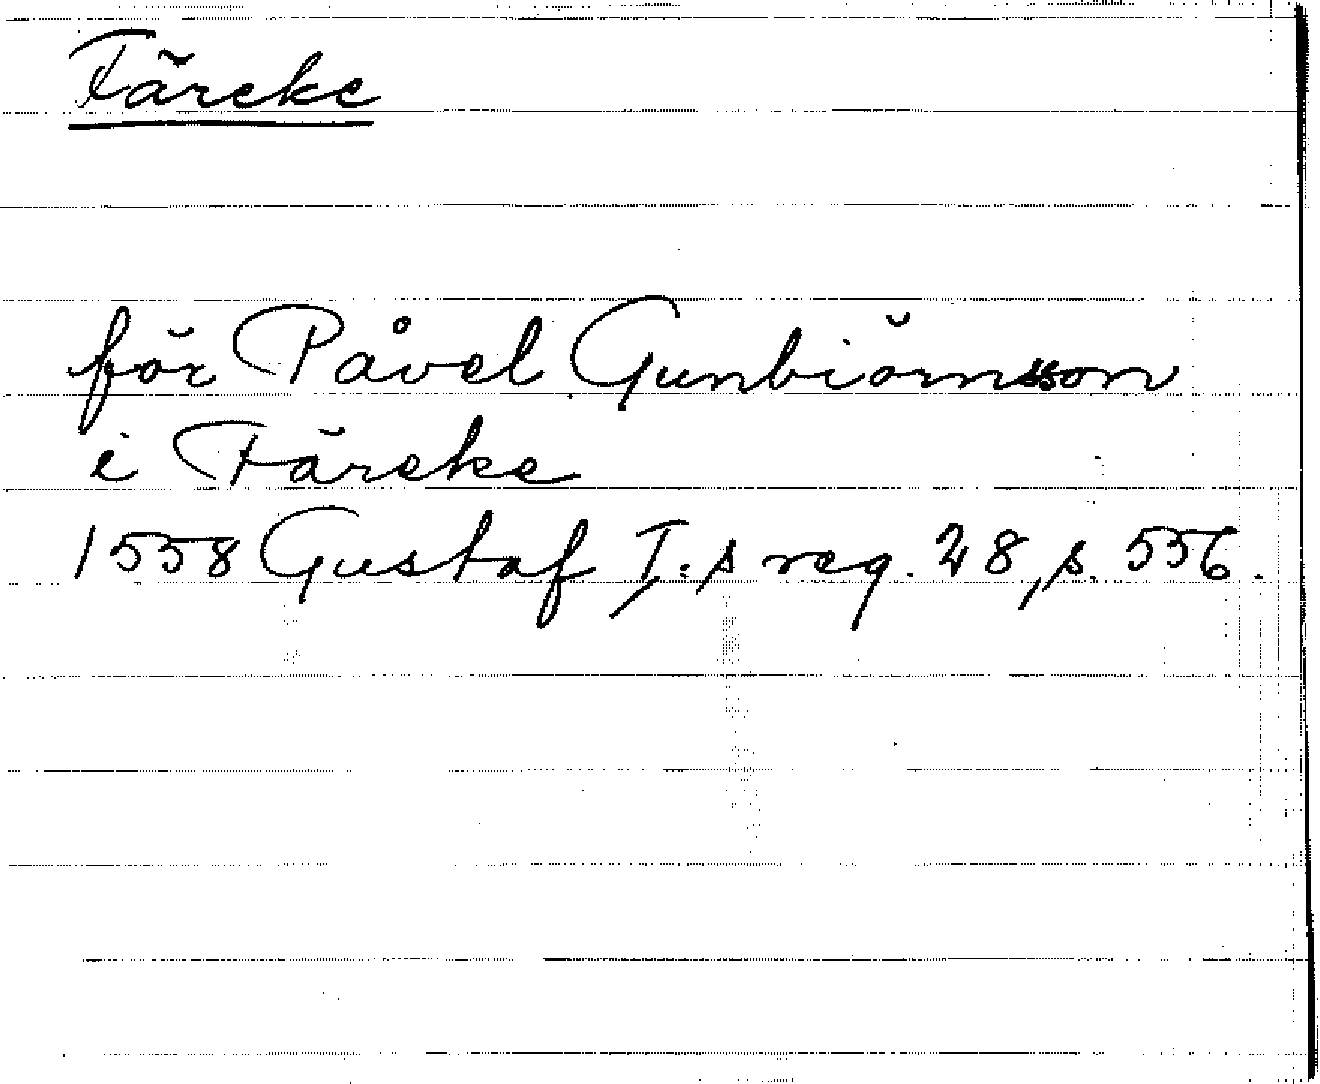 Färeke
för Påvel Gunbiörnsson
i Färeke
1558 Gustaf I:s reg. 28, s. 556.